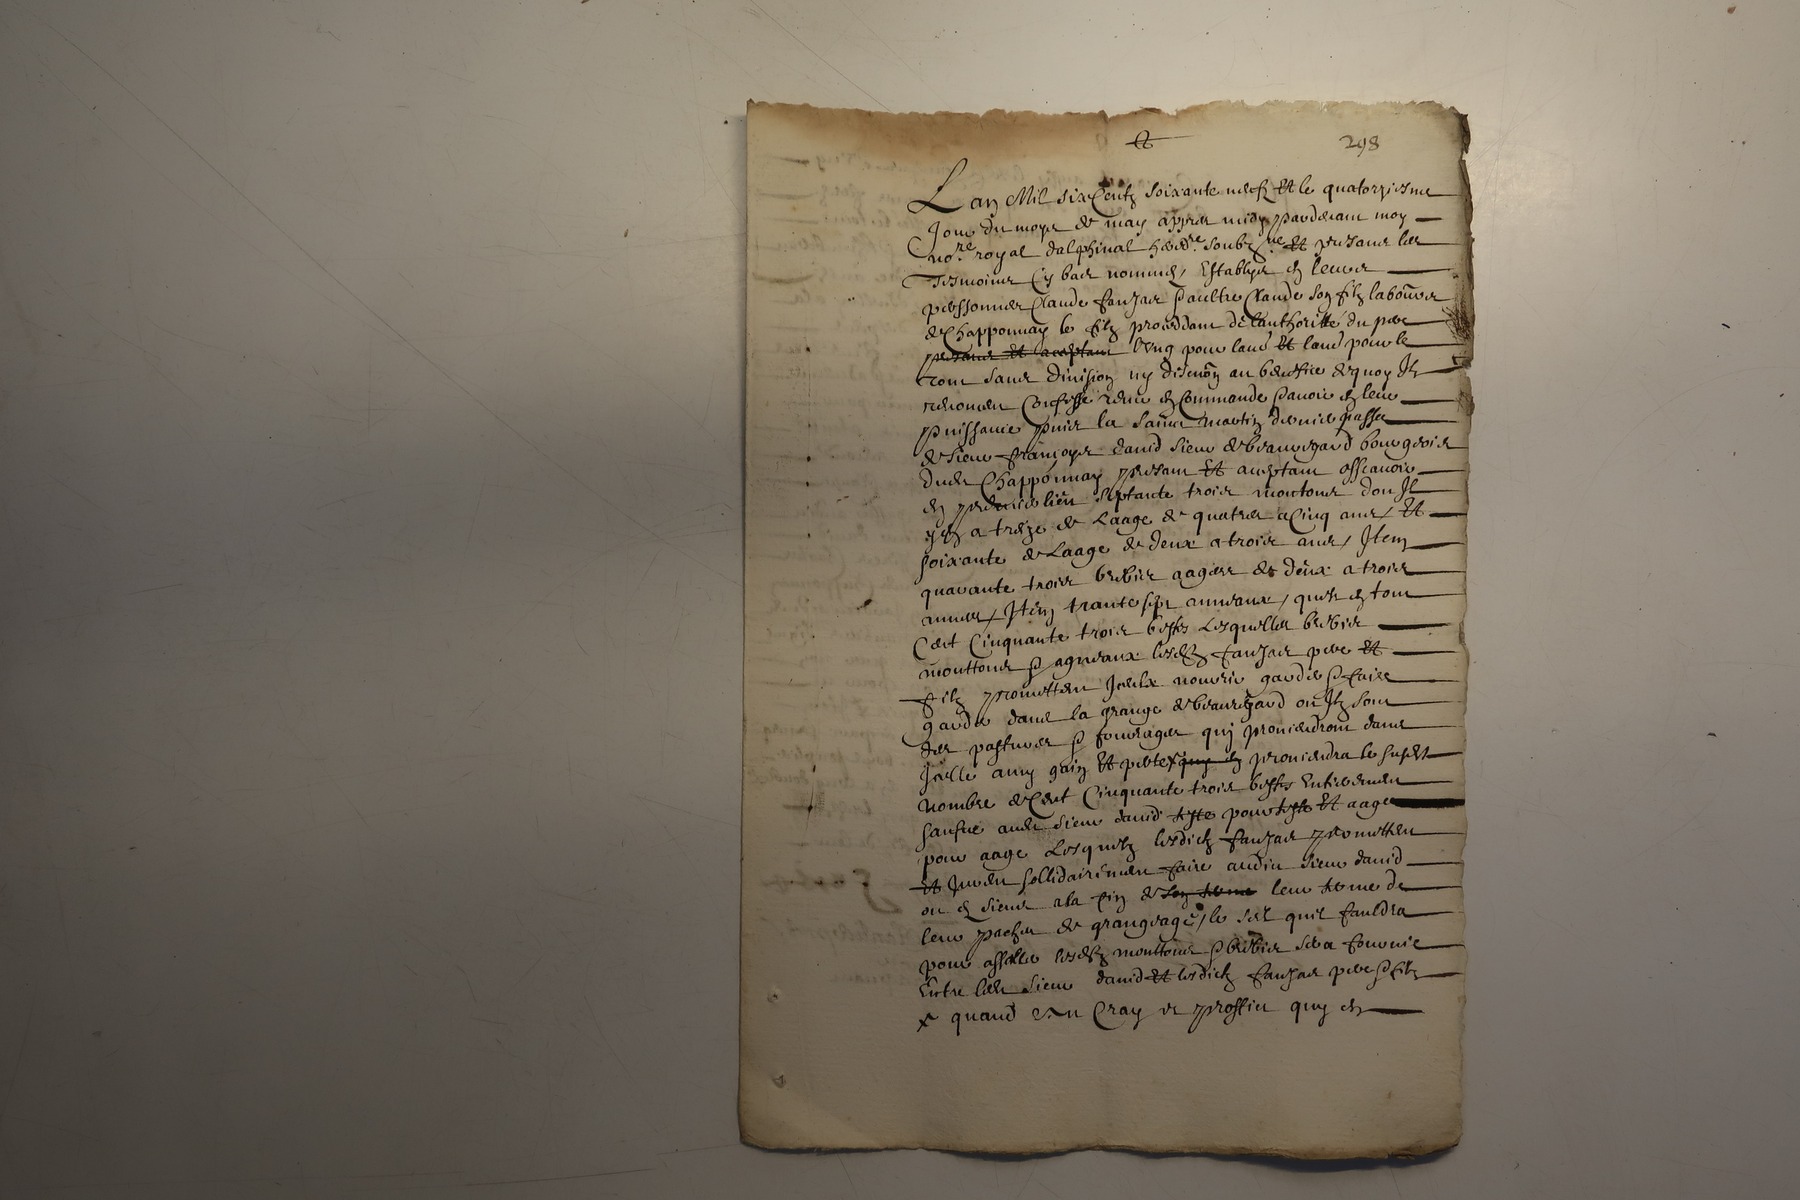 298
Lan Mil six Centz soixante neuf Et le quatorziesme
Jour du moys de may appres midy pardevant moy
no.re royal dalphinal hered.re soubz.ne et presans les
Tesmoins Cy bas nommes, Establys en leurs
personnes Claude faujas & aultre Claude son filz labours
de Chapponnay le filz proceddant de lauthoritté du pere
presans et acceptant lung pour laud Et laud pour le
tout sans division ny discution au benefice de quoy Ilz
renoncen Confesse tenir en Commande & avoir en leur
puissance puis la sainct martin dernier passe
de sieur françoys david sieur de beauregard bourgeois
dudt Chapponnay presant Et acceptant assavoir
en premier lieu septante trois moutons don Il
y en a treze de Laage de quatre a Cinq ans, Et
soixante de Laage de deux a trois ans, Item
quarante trois brebis aagees de deux a trois
annes, Item trante sept anneaux, quest en tout
Cent Cinquante trois bestes Lesquelles brebis
mouttons & agneaux lesdtz faujas pere Et
filz prometten Jcelx nourrir garder & faire
garder dans la grange de beauregard ou Ilz sont
des pastures & fourrages quj proviendront dans
Jcelle a my gain Et perte x quy en proviendra le susdt
nombre de Cent Cinquante trois bestes Entieremen
saufve audt sieur david teste pour teste Et aage
pour aage Lesquelz lesdictz faujas prometten
Et Juren sollidairemen faire audict sieur david
ou es siens a la fin de son terme leur terme de
leur paches de grangeage, le sel quil fauldra
pour assaller lesdtz mouttons & brebis sera fournie
Entre ledt sieur david Et lesdictz faujas pere & filz
x quand au Cray et proffict quy en